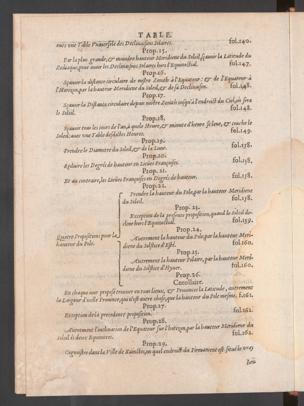 TABLE.
nues une Table Universele des Declinaisons Solaires. fol.240.
Prop.15.
Par la plus grande, & moindre hauteur Meridiene du Soleil, sçavoir la Latitude du
Zodiaque, pour avoir les Declinaisons Solaires hors l'Equinoctial. fol.247.
Prop.16.
Sçavoir la distance circulaire de nostre Zenith à l'Equateur: & de l'Equateur à
l'Horizon, par la hauteur Meridiene du Soleil, & de sa Declinaison. fol.248.
Prop.17.
Sçavoir la Distance circulaire depuis nostre Zenith jusqu'à l'endroit du Ciel, où sera
le Soleil. fol.248.
Prop.18.
Sçavoir tous les jours de l'an, à quele Heure, & minute d'heure se leve, & couche le
Soleil: avec une Table desdictes Heures. fol.149.
Prop.19.
Prendre le Diametre du Soleil, & de la Lune. fol.158.
Prop.20.
Reduire les Degrés de hauteur en Lieües Françoises. fol.158.
Prop.21.
Et au contraire, les Lieües Françoises en Degrés de hauteur. fol.158.
Prop.22.
Prendre la hauteur du Pole, par la hauteur Meridiene
du Soleil. fol.158.
Prop.23.
Exception de la presente proposition, quand le Soleil decline
hors l'Equinoctial. fol.159.
Prop.24.
Quatre Propositions pour la
hauteur du Pole.
Autrement la hauteur du Pole, par la hauteur Meridiene
du Solstice d'Esté. fol.160.
Prop.25.
Autrement la hauteur Polaire, par la hauteur Meridiene
du Solstice d'Hyver. fol.160.
Prop.26.
Corollaire.
En chaque jour proposé trouver en tous lieux, & Provinces la Latitude, autrement
la Largeur d'icelle Province, qui n'est autre chose, que la hauteur du Pole mesme. f.161.
Prop.27.
Exception de la precedente proposition. fol.162.
Prop.28.
Autrement l'inclination de l'Equateur sur l'Horizon, par la hauteur Meridiene du
Soleil és douze Equinoxes. fol.162.
Prop.29.
Cognoistre dans la Ville de Xainctes, en quel endroict du Firmament est situé le vray